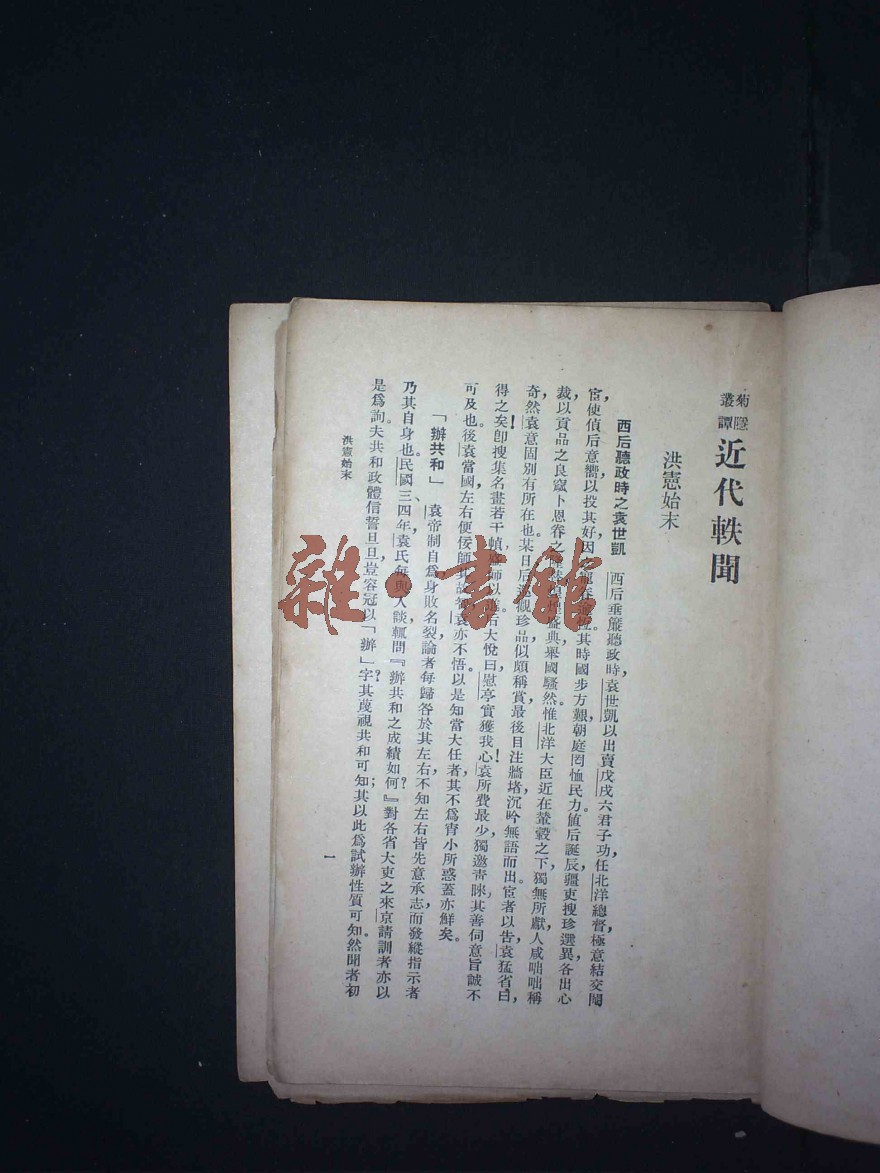 菊隱叢譚
近代軼聞
洪憲始末
西后聽政時之袁世凱 西后垂簾聽政時，袁世凱以出賣戊戌六君子功，任北洋總督，極意結交閹
宦，使偵后意嚮以投其好，因之寵眷。其時國步方艱，朝庭罔恤民力，値后誕辰，疆吏搜珍選異，各出心
裁，以貢品之良窳卜恩眷之盛典，舉國騷然。惟北洋大臣近在輦轂之下，獨無所獻，人咸咄咄稱
奇，然袁意固別有所在也。某日后觀珍品，似頗稱賞，最後目注牆堵，沉吟無語而出。宦者以告，袁猛省曰，
得之矣！卽搜集名畫若干幀以后大悅曰，慰亭實獲我心！袁所費最少，獨邀靑睞，其善伺意旨，誠不
可及也。後袁當國，左右便佞師其故智，袁亦不悟。以是知當大任者，其不爲宵小所惑，蓋亦鮮矣。
「辦共和」 袁帝制自爲，身敗名裂，論者每歸咎於其左右，不知左右皆先意承志，而發縱指示者，
乃其自身也。民國三四年，袁氏每與人談，輒問『辦共和之成績如何？』對各省大吏之來京請訓者，亦以
是爲詢。夫共和政體，信誓旦旦，豈容冠以「辦」字？其蔑視共和可知；其以此爲試辦性質可知。然聞者初
洪憲始末
一
雜·書館